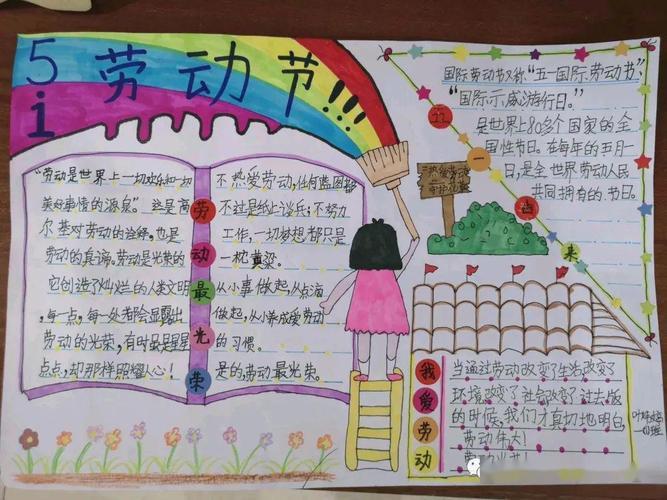 5 1
劳动节!!!
国际劳动节又称“五一国际劳动节”、
“国际示威游行日。”
是世界上80多个国家的全
国性节日。在每年的五月一
日，是全世界劳动人民
共同拥有的节日。
一
起
来
“劳动是世界上一切欢乐和一切
美好事情的源泉”。这是高
尔基对劳动的诠释，也是
劳动的真谛。劳动是光荣的
它创造了灿烂的人类文明
，每一点，每一处都会显露出
劳动的光荣，有时虽是星星
点点，却那样照耀人心！
劳
动
最
光
荣
不热爱劳动，任何蓝图都
不过是纸上谈兵；不努力
工作，一切梦想都只是
一枕黄粱。
从小事做起，从点滴
做起，从小养成爱劳动
的习惯。
是的劳动最光荣。
热爱劳动
我
爱
劳
动
当通过劳动改变了生活改变了
环境改变了社会改变了过去的
的时候，我们才真切地明白
劳动伟大！